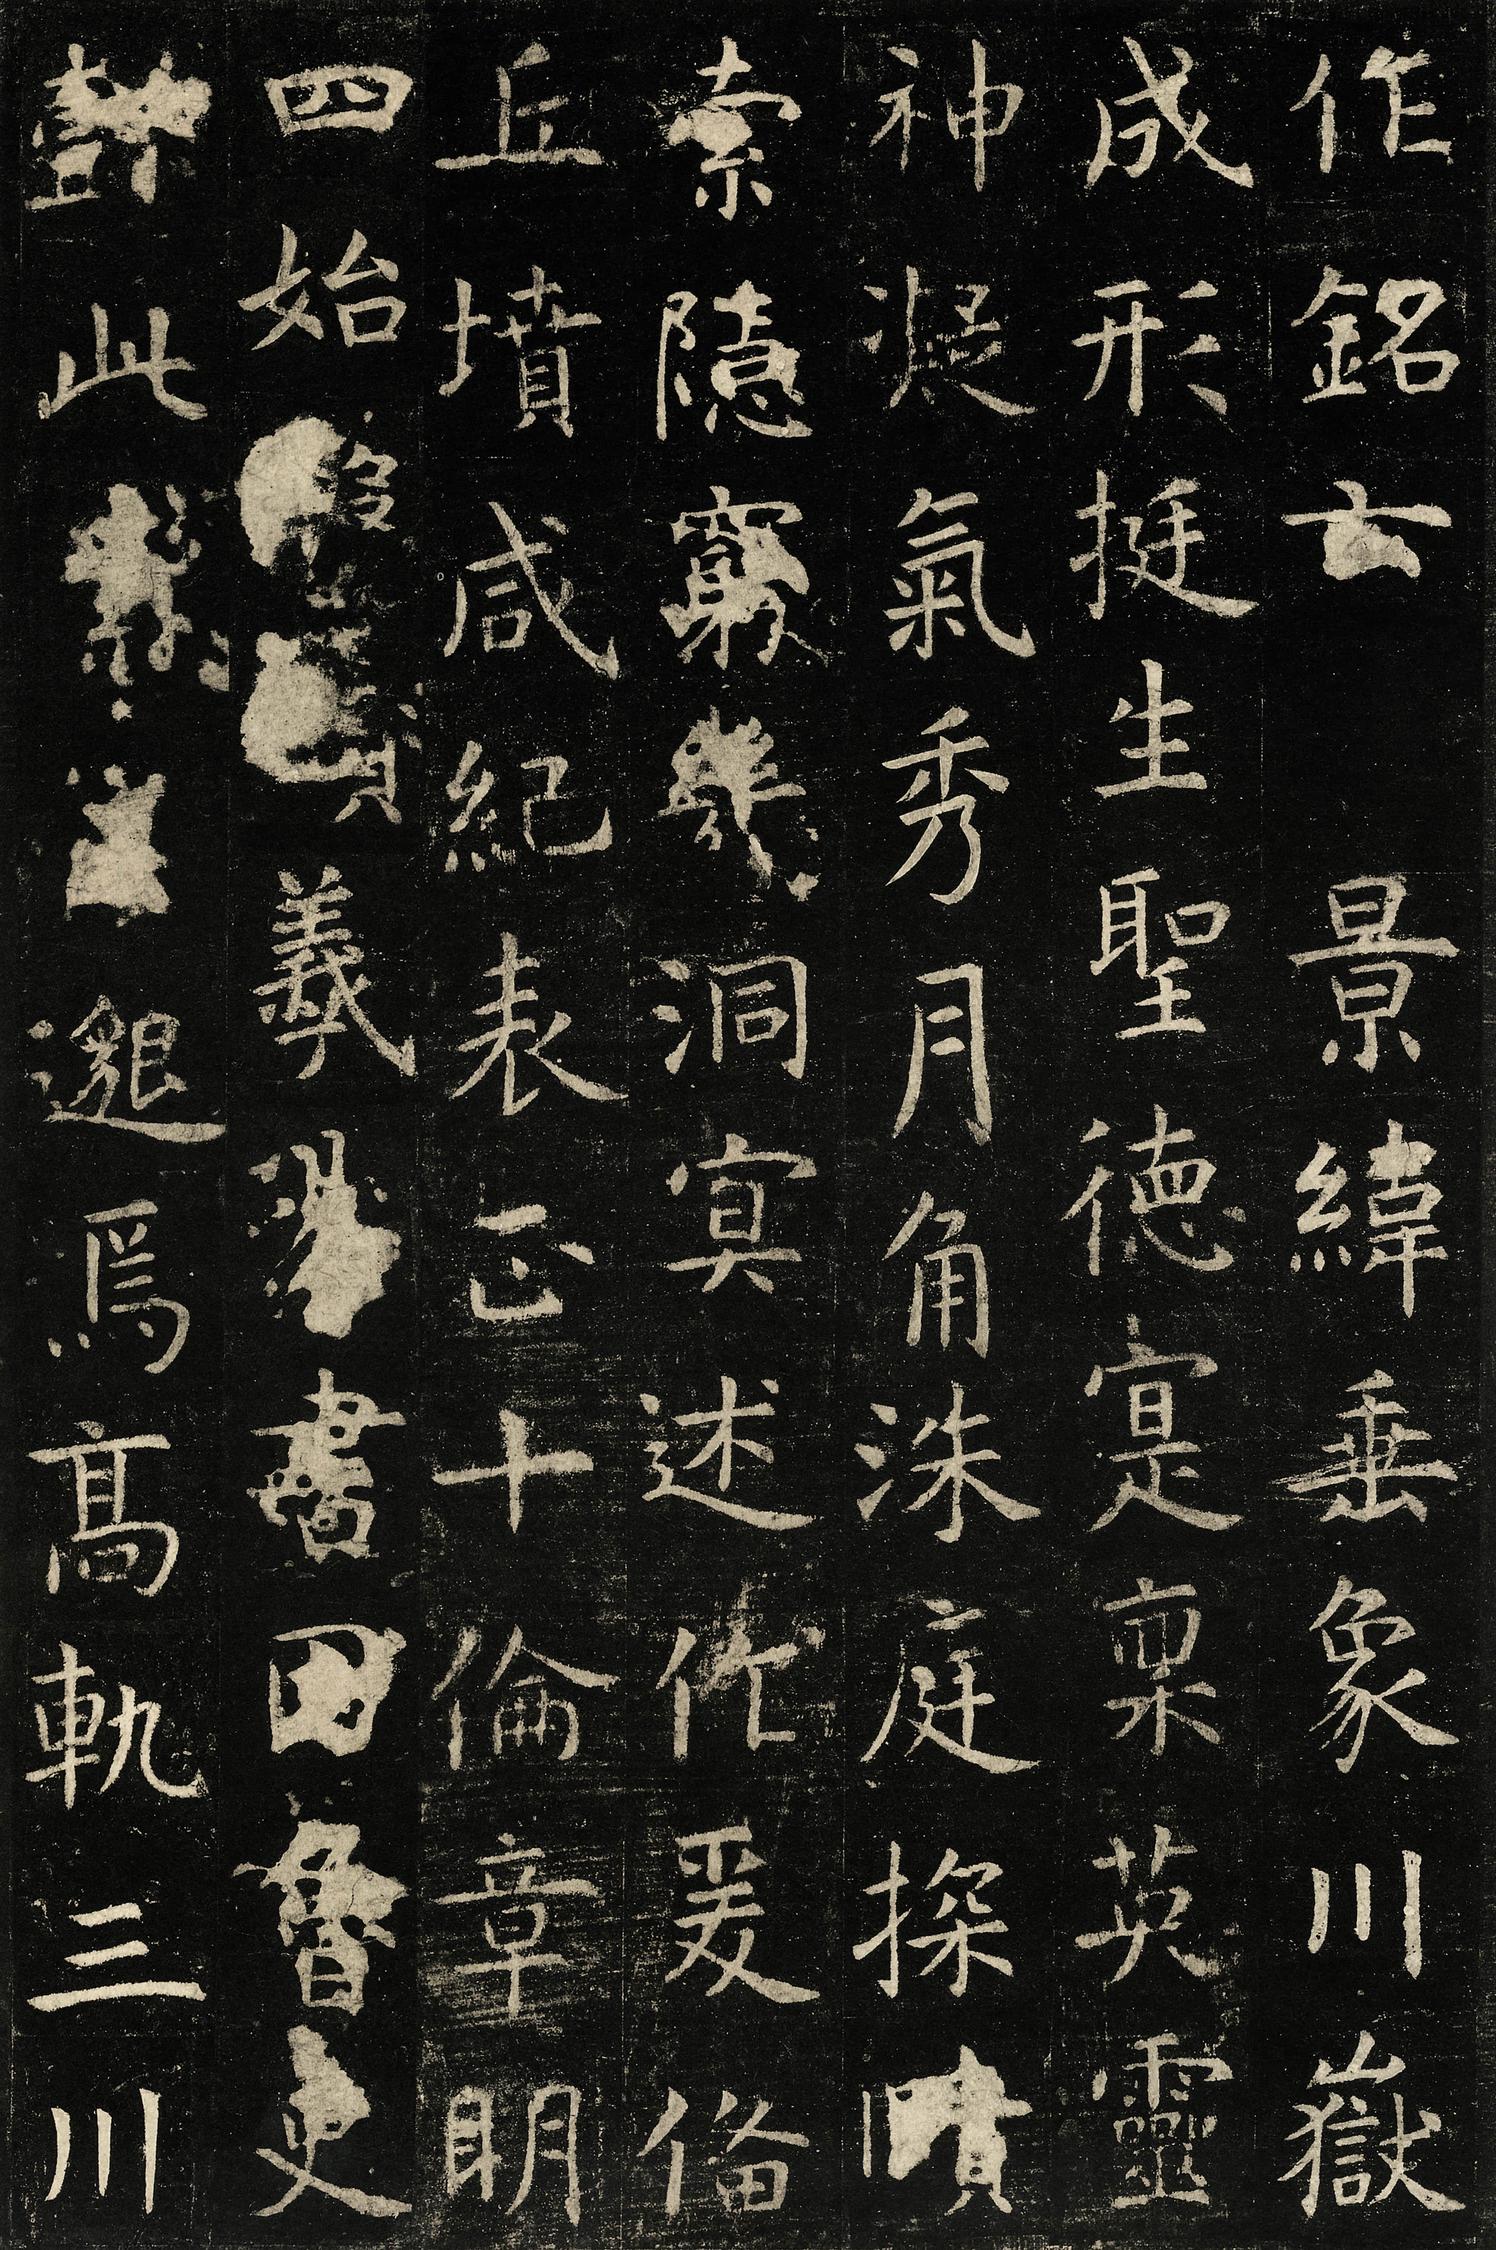 作銘云 景緯垂象川嶽
成形挺生聖德寔稟英靈
神凝氣秀月角洙庭探賾
索隱窮幾洞冥述作爰備
丘墳咸紀表正十倫章明
四始羲易書因魯史
懿此素王邈焉高軌三川